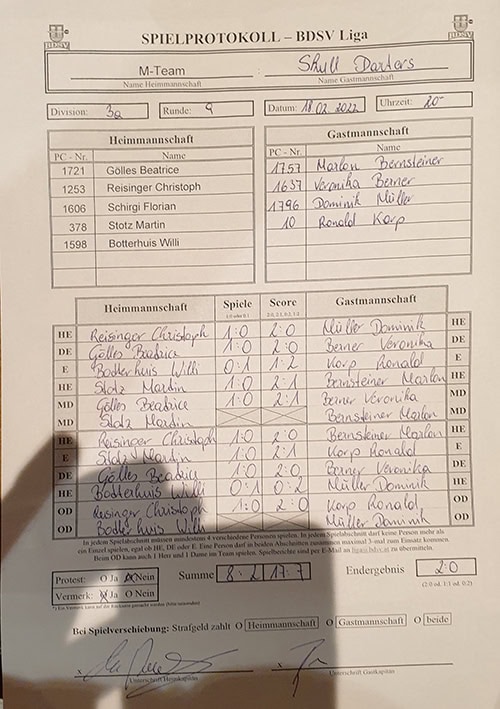 SPIELPROTOKOLL – BDSV Liga
BDSV
BDSV
M-Team : Skull Darters
Name Heimmannschaft Name Gastmannschaft
Division: 3a Runde: 9 Datum: 18.02.2022 Uhrzeit: 20-
Heimmannschaft Gastmannschaft
PC - Nr. Name PC - Nr. Name
1721 Gölles Beatrice 1757 Marlon Bernsteiner
1253 Reisinger Christoph 1637 Veronika Berner
1606 Schirgi Florian 1796 Dominik Müller
378 Stotz Martin 10 Ronald Korp
1598 Botterhuis Willi
Heimmannschaft Spiele Score Gastmannschaft
1:0 oder 0:1 2:0, 2:1, 0:2, 1:2
HE Reisinger Christoph 1:0 2:0 Müller Dominik HE
DE Gölles Beatrice 1:0 2:0 Berner Veronika DE
E Botterhuis Willi 0:1 1:2 Korp Ronald E
HE Stotz Martin 1:0 2:1 Bernsteiner Marlon HE
MD Gölles Beatrice 1:0 2:1 Berner Veronika MD
MD Stotz Martin Bernsteiner Marlon MD
HE Reisinger Christoph 1:0 2:0 Bernsteiner Marlon HE
E Stotz Martin 1:0 2:1 Korp Ronald E
DE Gölles Beatrice 1:0 2:0 Berner Veronika DE
HE Botterhuis Willi 0:1 0:2 Müller Dominik HE
OD Reisinger Christoph 1:0 2:0 Korp Ronald OD
OD Botterhuis Willi Müller Dominik OD
In jedem Spielabschnitt müssen mindestens 4 verschiedene Personen spielen. In jedem Spielabschnitt darf keine Person mehr als
ein Einzel spielen, egal ob HE, DE oder E. Eine Person darf in beiden Abschnitten zusammen maximal 3-mal zum Einsatz kommen.
Beim OD kann auch 1 Herr und 1 Dame im Team spielen. Spielberichte sind per E-Mail an liga@bdsv.at zu übermitteln.
Protest: O Ja O Nein Summe 8:2 17:7 Endergebnis 2:0
Vermerk: O Ja O Nein (2:0 od. 1:1 od. 0:2)
Bei Spielverschiebung: Strafgeld zahlt O Heimmannschaft O Gastmannschaft O beide
x x
Unterschrift Heimkapitän Unterschrift Gastkapitän